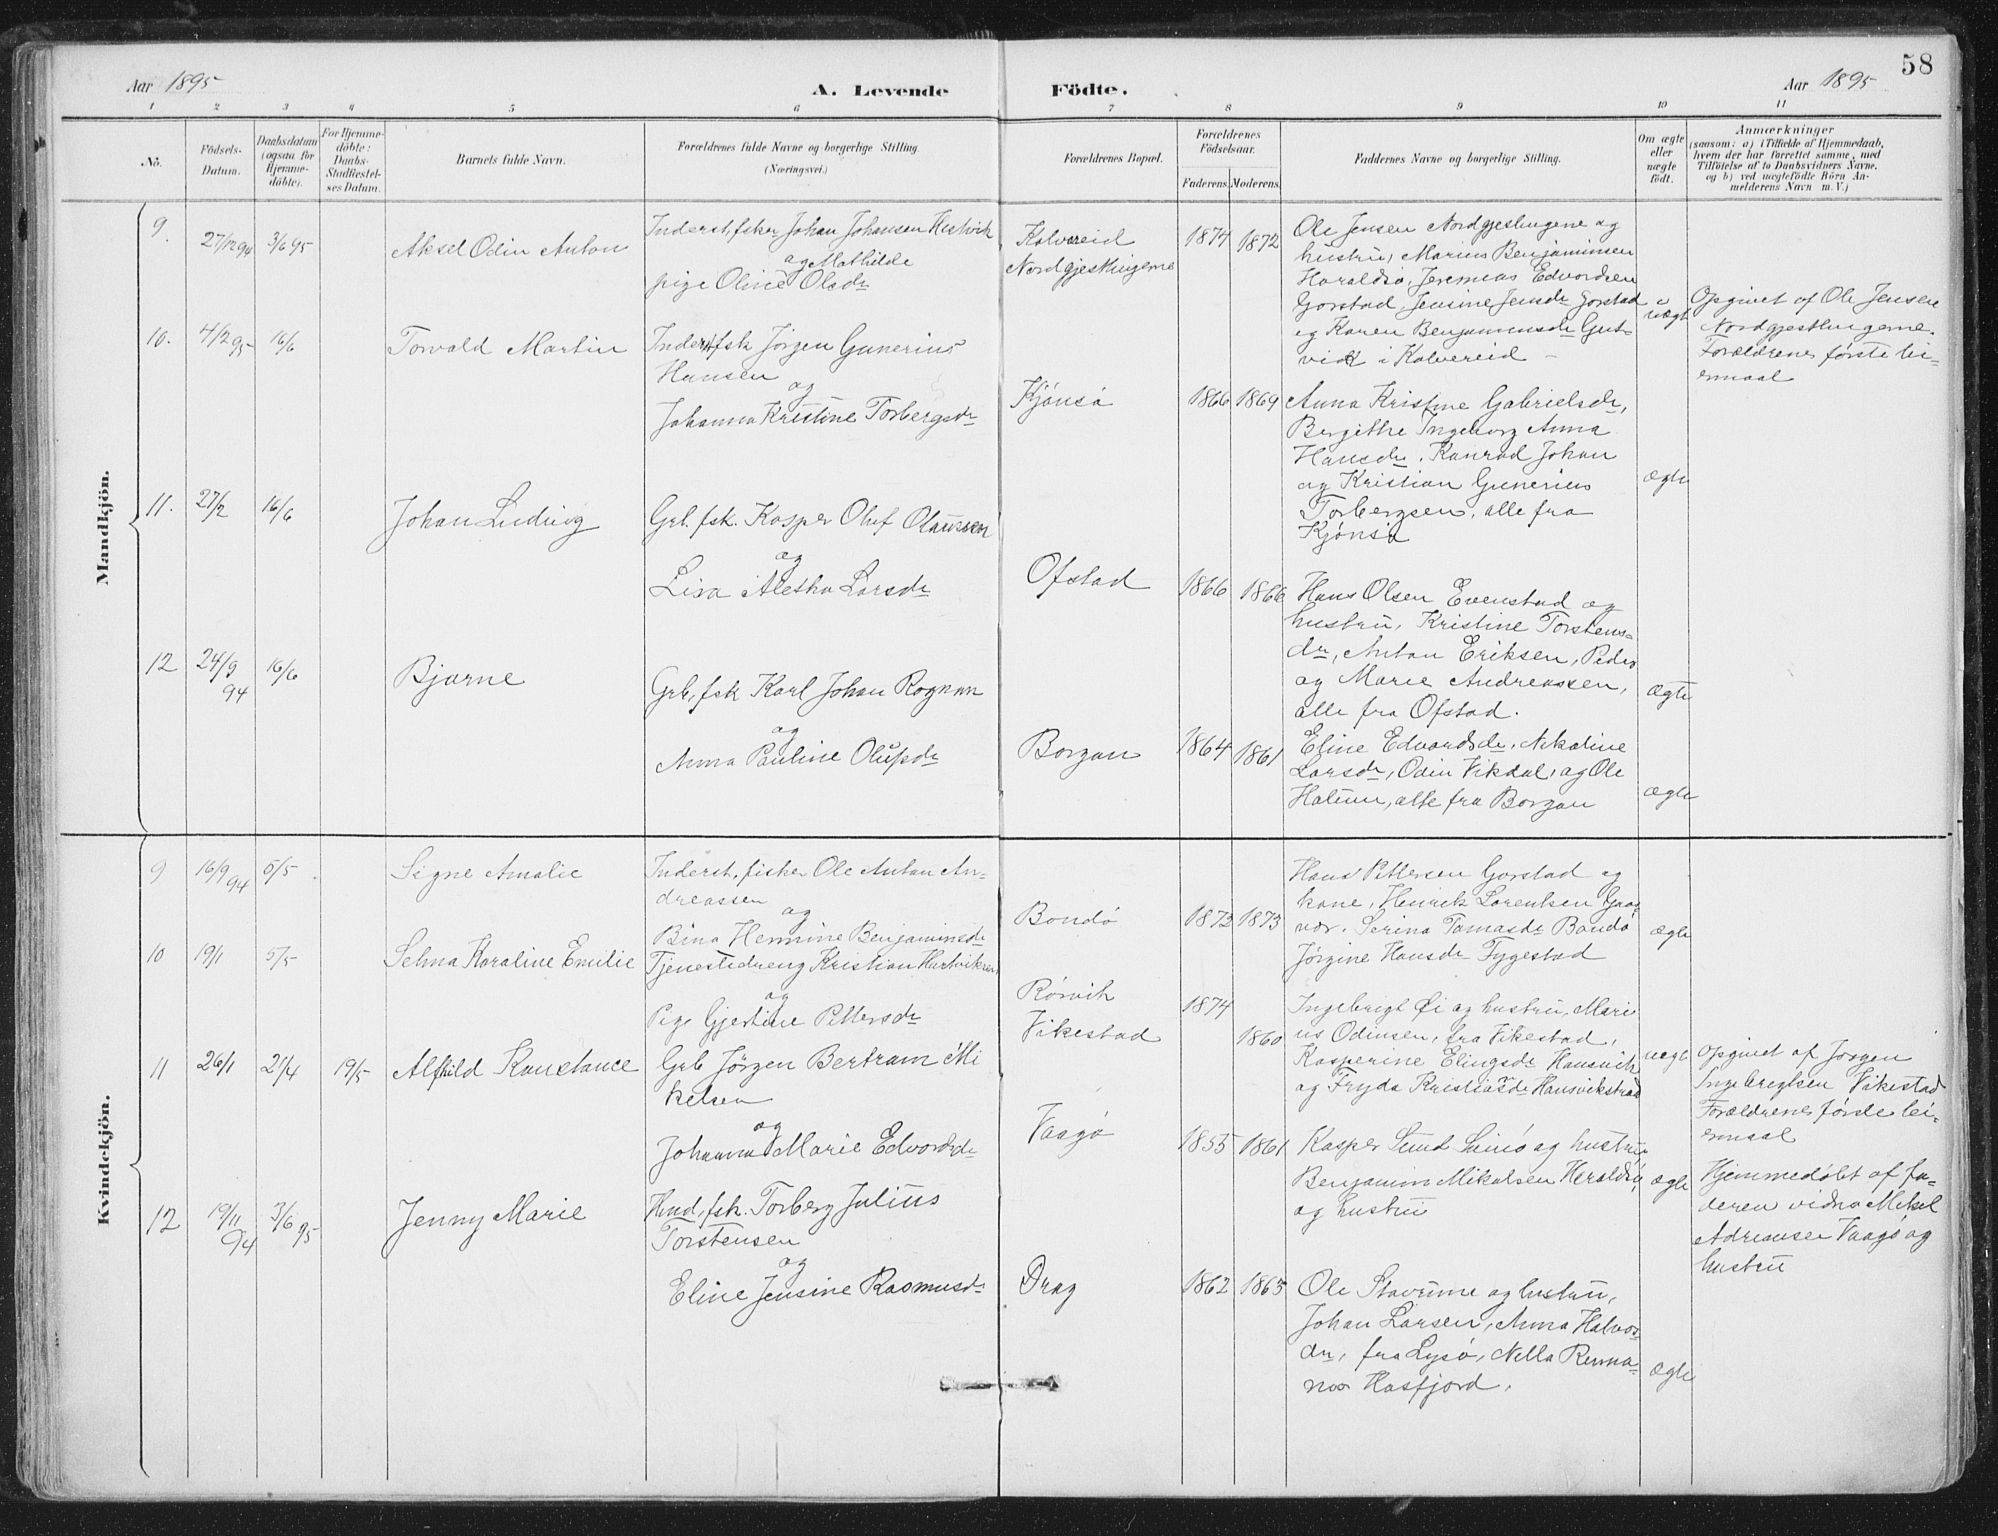 58
Aar 1895
A. Levende Födte.
Aar 1895
1 2 3 4 5 6 7 8 9 10 11
No.
Födsels-
Datum.
Daabsdatum
(ogsaa for
Hjemme-
döbte).
For Hjemme-
döbte:
Daabs-
Stadfæstel-
ses Datum.
Barnets fulde Navn.
Forældrenes fulde Navne og borgerlige Stilling.
(Næringsvei.)
Forældrenes Bopæl.
Forældrenes
Födselsaar.
Faderens. Moderens.
Faddernes Navne og borgerlige Stilling.
Om ægte
eller
uægte
födt.
Anmærkninger
(saasom: a) i Tilfælde af Hjemmedaab,
hvem der har forrettet samme, med
Tilföielse af to Daabsvidners Navne,
og b) ved uægtefödte Börn An-
melderens Navn m. V.)
Mandkjön.
9. 27/12 94 3/6 95 Aksel Odin Anton
Inderst, fisker Johan Johansen Hestvik
og Mathilde
pige Oline Olsdr
Kolvereid
Nordgjeslingerne
1874 1872
Ole Jensen Nordgjeslingerne og
hustru, Marius Benjaminsen
Haraldsø, Jeremeas Edvardsen
Gorstad, Jensine Jensdr Gorstad
og Karen Benjaminsdr Gut-
vik i Kolvereid
uægte
Opgivet af Ole Jensen
Nordgjeslingerne.
Forældrenes første lei-
ermaal
10. 4/2 95 16/6 Torvald Martin
Inderst fsk Jørgen Gunerius
Hansen
og
Johanna Kristine Torbergsdr
Kjønsø
1866 1869
Anna Kristine Gabrielsdr,
Bergithe Ingeborg Anna
Hansdr, Konrad Johan
og Kristian Gunerius
Torbergsen, alle fra
Kjønsø
ægte
11. 27/2 16/6 Johan Ludvig
Grb. fsk. Kasper Oluf Olaussen
og
Lisa Aletha Larsdr
Ofstad
1866 1866
Hans Olsen Evenstad og
hustru, Kristine Torstens-
dr, Anton Eriksen, Peder
og Marie Andreassen,
alle fra Ofstad.
ægte
12 24/9 94 16/6 Bjarne
Grb, fsk Karl Johan Rognan
og
Anna Pauline Olufsdr
Borgan
1864 1861
Eline Edvardsdr, Nikoline
Larsdr, Odin Vikdal, og Ole
Halmu, alle fra Borgan
ægte
Kvindekjön.
9 16/9 94 5/5 Signe Amalie
Inderst, fisker Ole Anton An-
dreassen
og
Bina Hermine Benjaminsdr
Bondø
1872 1873
Hans Pettersen Gorstad og
kone, Henrik Lorentsen Gaas-
vær. Serina Tomasdr Bondø
Jørgine Hansdr Fygestad
ægte
10 19/1 5/5 Selma Karoline Emilie
Tjenestedreng Kristian Hartviksen
og
Pige Gjertine Pettersdr
Rørvik
Vikestad
1874
1860
Ingebrigt Øi og hustru, Mari
us Odinsen, fra Vikestad,
Kasperine Elingsdr Hansvik
og Fryda Kristiansdr Hansvikstrand
uægte
Opgivet af Jørgen
Ingebregtsen Vikestad
Forældrenes første lei-
ermaal
11 26/1 21/4 19/5 Alfhild Konstance
Grb Jørgen Bertram Mi
kelsen
og
Johanna Marie Edvardsdr
Vaagø
1855 1861
Kasper Sund Simsø og hustru
Benjamin Mikalsen Heraldsø,
og hustru
ægte
Hjemmedøbt af fa-
deren vidne Mikal
Adriansen Vaagø og
hustru
12 19/11 94 3/6 95 Jenny Marie
Hmd, fsk. Torberg Julius
Torstensen
og
Eline Jensine Rasmusdr
Drag
1862 1865
Ole Stavrume og hustru,
Johan Larsen, Anna Halvors-
dr, fra Lysø, Nella
Hasfjord.
ægte